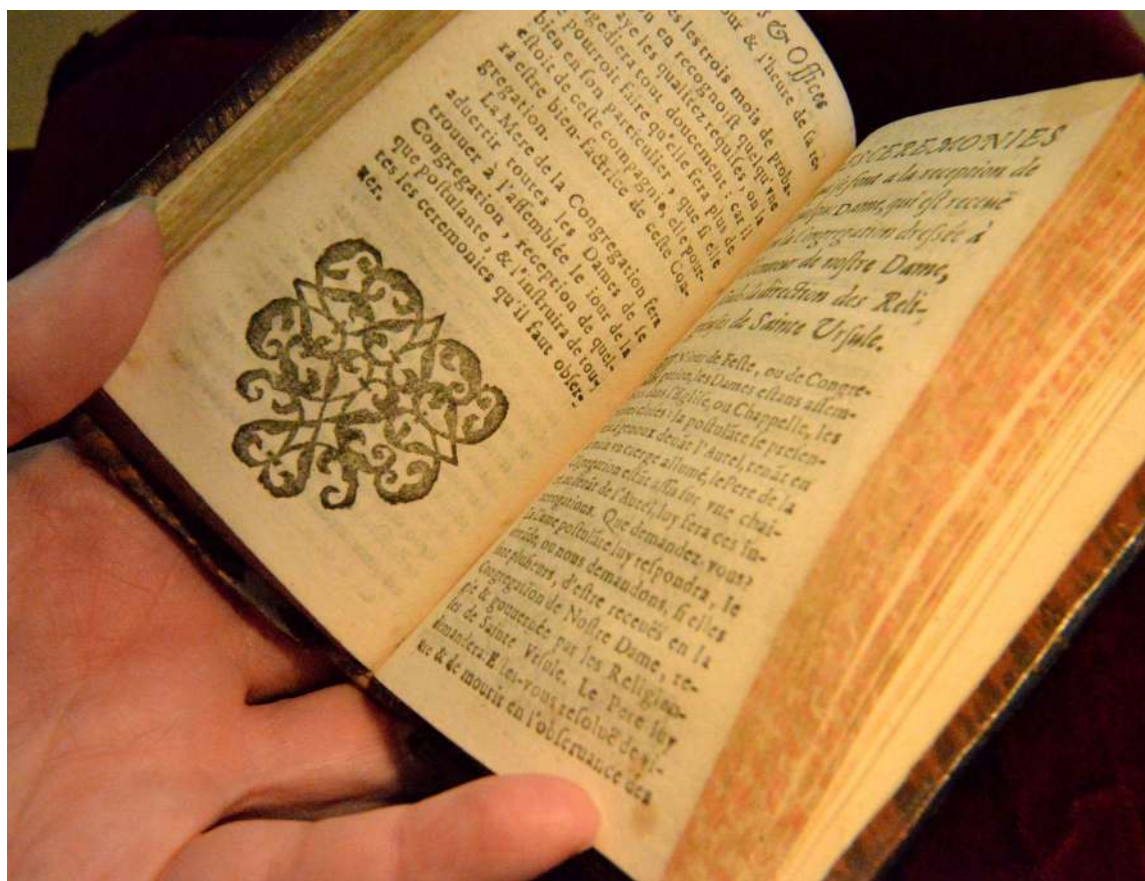 & Offices
our & l'heure de sa re-
les trois mois de proba-
on en recognoist quelqu'vne
aye les qualitez requises, on la
gediera tout doucement, car il
pourroit faire qu'elle sera plus de
bien en son pareiculier, que si elle
estoit de ceste compagnie, elle pour-
ra estre bien-factrice de ceste Con-
gregation.
La Mere de la Congregation fera
aduertir toutes les Dames de se
trouuer à l'assemblée le iour de la
Congregation, reception de quel-
que postulante, & l'instruira de tou-
tes les ceremonies qu'il faut obser-
uer.
CEREMONIES
se font a la reception de
Dame, qui est receuë
la Congregation dressée à
de nostre Dame,
la direction des Reli-
de Sainte Vrsule.
de Feste, ou de Congre-
les Dames estans assem-
dans l'Eglise, ou Chappelle, les
: la postulãte se presen-
à genoux deuãt l'Autel, tenãt en
vn cierge allumé, le Pere de la
assis sur vne chai-
de l'Autel, luy fera ces In-
Que demandez-vous?
Dame postulãte luy respondra, Ie
ou nous demandons, si elles
plusieurs, d'estre receuës en la
Congregation de Nostre Dame, re-
& gouuernée par les Religieu-
de Sainte Vrsule. Le Pere luy
demandera: Estes-vous resoluë de vi-
ure & de mourir en l'obseruance des